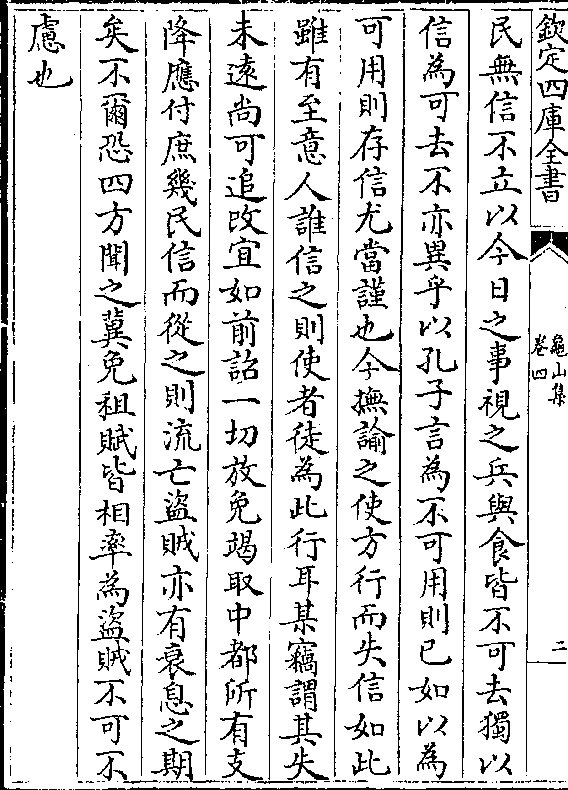 欽定四庫全書
龜山集
卷四
二
民無信不立以今日之事視之兵與食皆不可去獨以
信為可去不亦異乎以孔子言為不可用則已如以為
可用則存信尤當謹也今撫諭之使方行而失信如此
雖有至意人誰信之則使者徒為此行耳某竊謂其失
未遠尚可追改宜如前詔一切放免竭取中都所有支
降應付庶幾民信而從之則流亡盜賊亦有衰息之期
矣不爾恐四方聞之冀免租賦皆相率為盜賊不可不
慮也